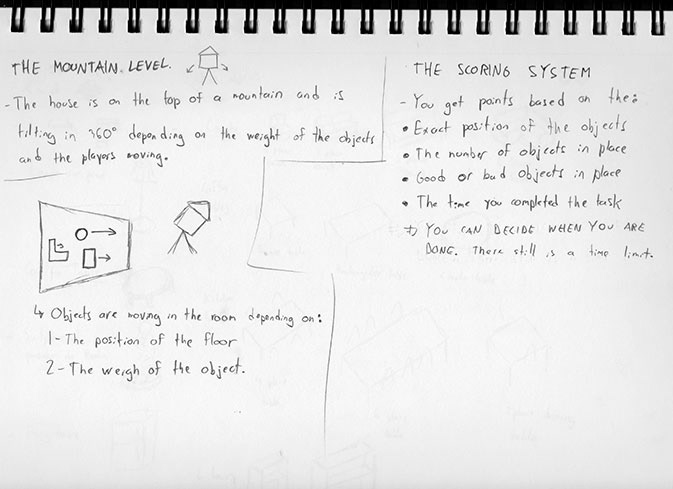 THE MOUNTAIN LEVEL.
- The house is on the top of a mountain and is
tilting in 360° depending on the weight of the objects
and the players moving.
↳ Objects are moving in the room depending on:
1- The position of the floor
2- The weigh of the object.
THE SCORING SYSTEM
- You get points based on the:
• Exact position of the objects
• The number of objects in place
• Good or bad objects in place
• The time you completed the task
⇒ YOU CAN DECIDE WHEN YOU ARE
DONE. There still is a time limit.